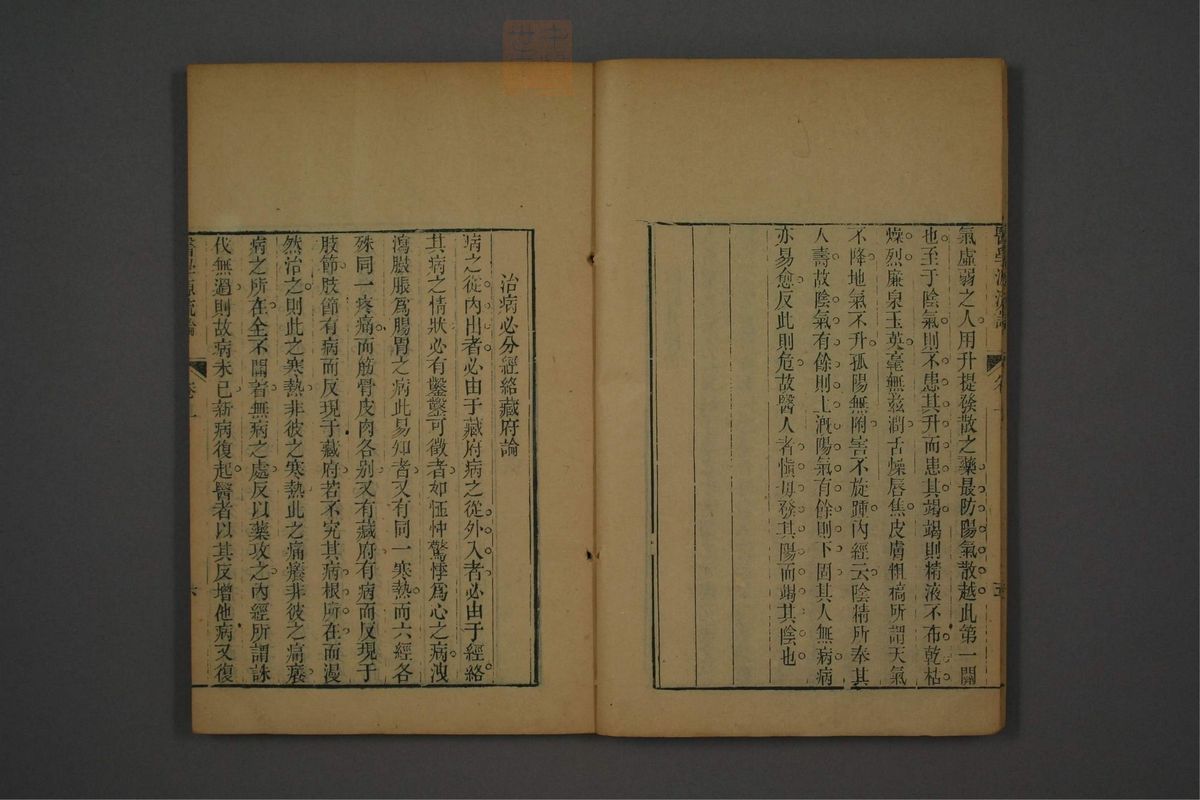 氣虛弱之人用升提發散之藥最防陽氣散越此第一關
也至于陰氣則不患其升而患其竭竭則精液不布乾枯
燥烈廉泉玉英毫無滋潤舌燥唇焦皮膚粗槁所謂天氣
不降地氣不升孤陽無附害不旋踵內經云陰精所奉其
人壽故陰氣有餘則上溉陽氣有餘則下固其人無病病
亦易愈反此則危故醫人者慎毋發其陽而竭其陰也
治病必分經絡藏府論
病之從內出者必由于藏府病之從外入者必由于經絡
其病之情狀必有鑿鑿可徵者如怔忡驚悸爲心之病洩
瀉臌脹爲腸胃之病此易知者又有同一寒熱而六經各
殊同一疼痛而筋骨皮肉各别又有藏府有病而反現于
肢節肢節有病而反現于藏府若不究其病根所在而漫
然治之則此之寒熱非彼之寒熱此之痛癢非彼之痛癢
病之所在全不關者無病之處反以藥攻之內經所謂誅
伐無過則故病未已新病復起醫者以其反增他病又復
醫學源流論
卷上
六